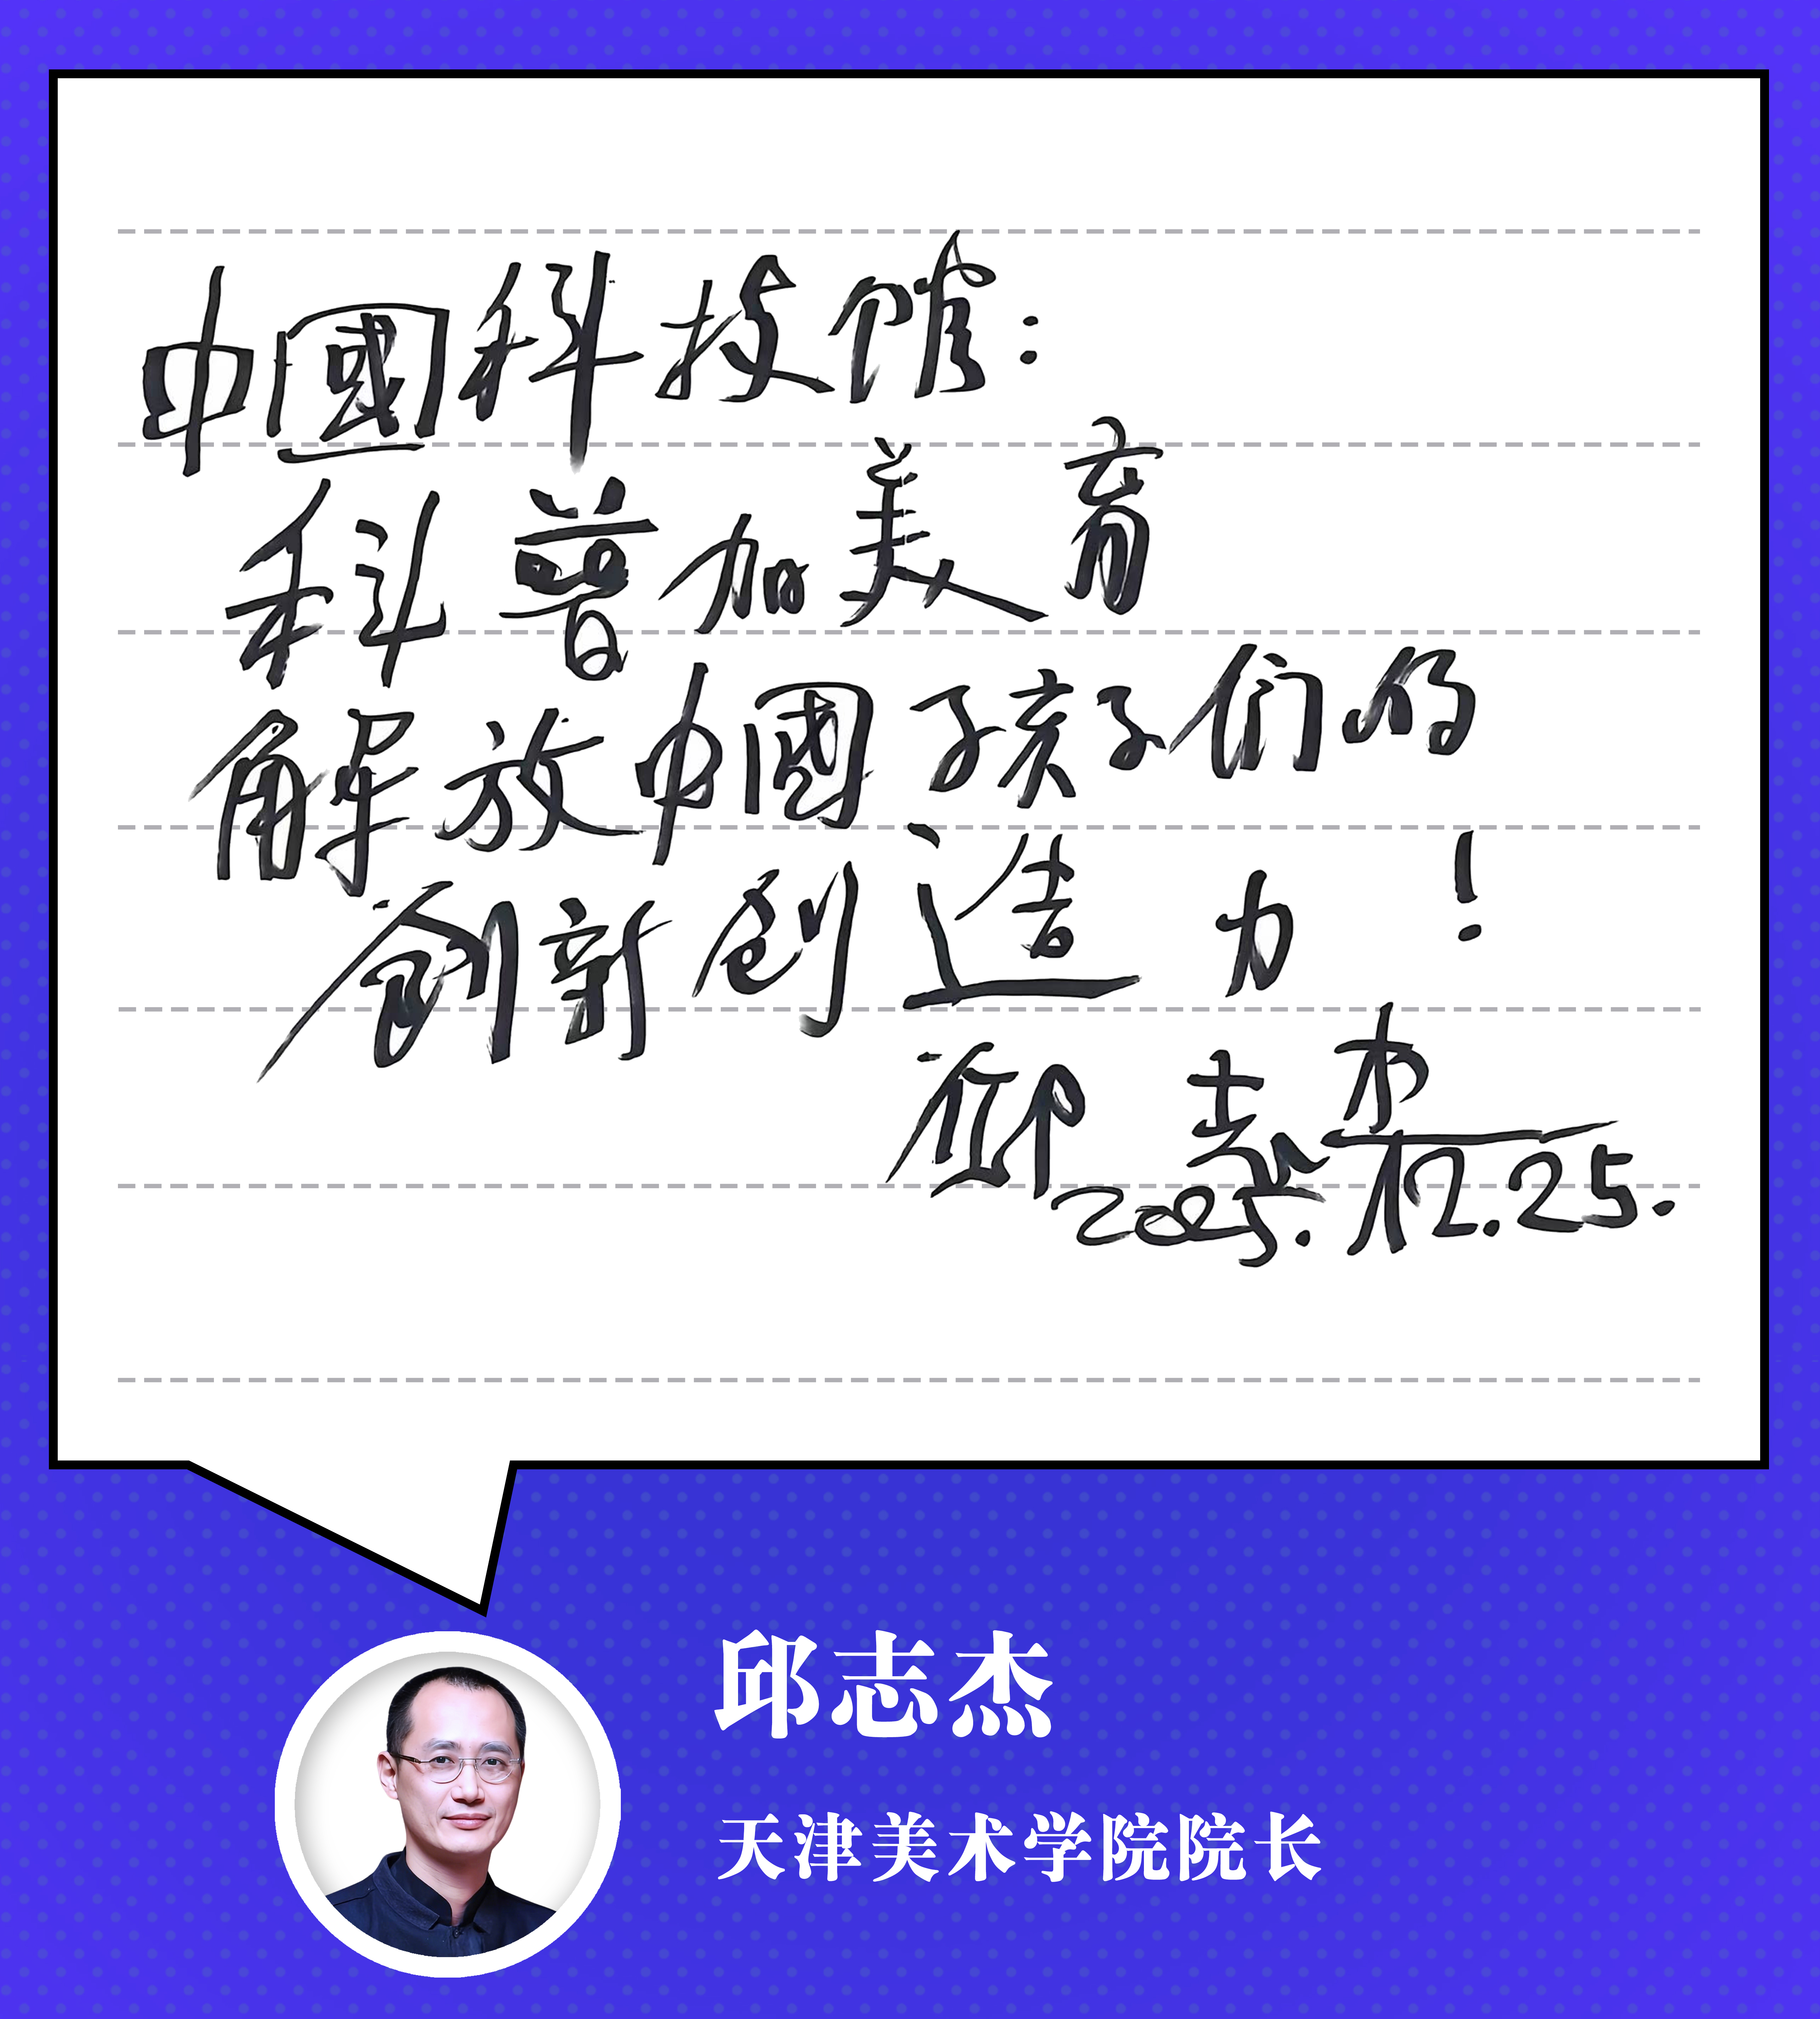 中國科技馆：
科普加美育
解放中國孩子们的
创新创造力！
邱志杰
2025.12.25.
邱志杰
天津美术学院院长